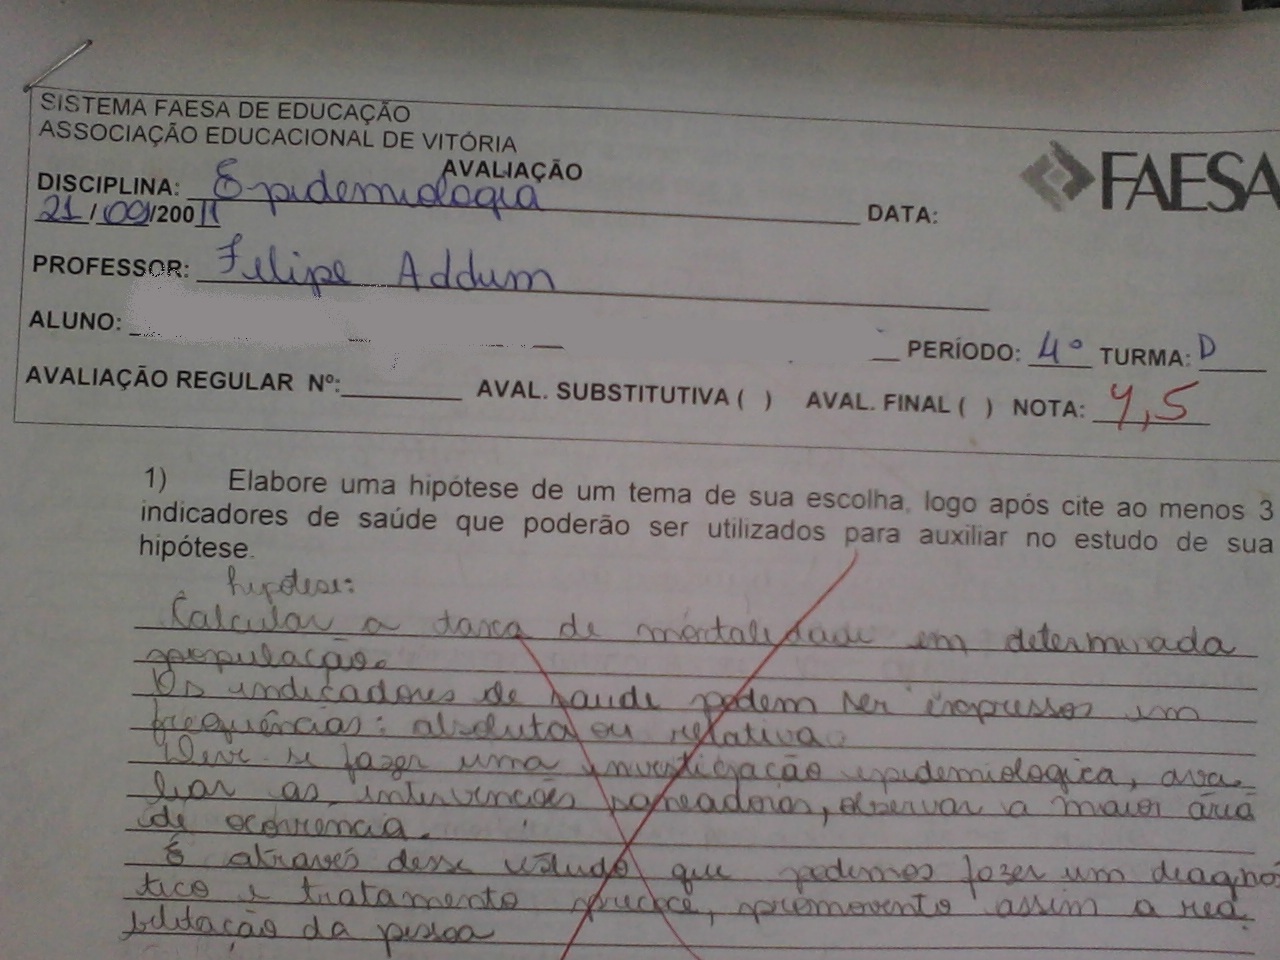 SISTEMA FAESA DE EDUCAÇÃO
ASSOCIAÇÃO EDUCACIONAL DE VITÓRIA
FAESA
AVALIAÇÃO
DISCIPLINA: Epidemiologia DATA:
21/09/200 11
PROFESSOR: Felipe Addum
ALUNO: PERÍODO: 4º TURMA: D
AVALIAÇÃO REGULAR Nº: AVAL. SUBSTITUTIVA ( ) AVAL. FINAL ( ) NOTA: 4,5
1) Elabore uma hipótese de um tema de sua escolha, logo após cite ao menos 3
indicadores de saúde que poderão ser utilizados para auxiliar no estudo de sua
hipótese.
hipótese:
Calcular a taxa de mortalidade em determinada
população.
Os indicadores de saude podem ser expressos em
frequências: absoluta ou relativa.
Deve se fazer uma investigação epidemiologica, ava-
liar as intervenções saneadoras, observar a maior área
de ocorrencia.
É através desse estudo que podemos fazer um diagnós
tico e tratamento precoce, promovento assim a rea
bilitação da pessoa